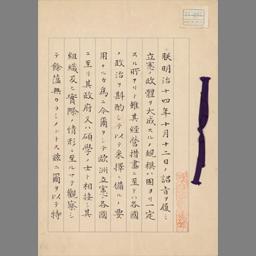 朕明治十四年十月十二日ノ詔旨ヲ履ミ
立憲ノ政體ヲ大成スルノ規模ハ固ヨリ一定
スル所アリト雖其經營措畫ニ至テハ各國
ノ政治ヲ斟酌シテ以テ採擇ニ備ルノ要
用ナルカ爲ニ今爾ヲシテ歐洲立憲ノ各國
ニ至リ其政府又ハ碩學ノ士ト相接シ其
組織及ヒ實際ノ情形ニ至ルマテ觀察シ
テ餘蘊無カラシメントス茲ニ爾ヲ以テ特